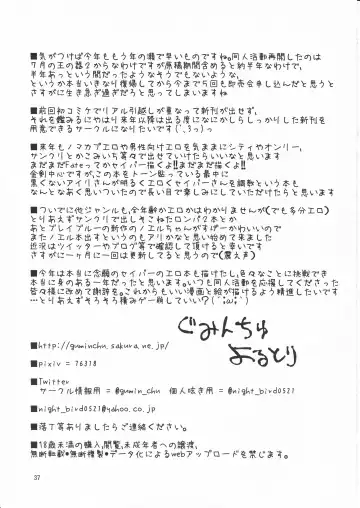 ■気がつけば今年ももう年の瀬で早いものですね。同人活動再開したのは
7月の王の器2からなわけですが原稿期間含めると約半年なわけで、
半年あっという間だったようなそうでもないような、
というか本当にいきなり復帰してから今まで5回も即売会申し込んだと思うと
さすがに生き急ぎ過ぎだろうと思ってしまいますね
■前回初コミケでリアル引越しが重なって新刊が出せず、
それを鑑みるにやはり来年以降は出る度になにかしらしっかりした新刊を
用意できるサークルになりたいです(´,3っ)っ
■来年もノマカプエロや男性向けエロを気ままにシティやオンリー、
サンクリとかこみいち等々で出せていけたらいいなと思います
まだまだFateってかセイバー描くよ!!まだまだ描くよ!!
金剣中心ですが、この本をトーン貼っている最中に
黒くないアイリさんが明るくエロくセイバーさんを調教という本も
なんとなあく思いついたので長い目で楽しみにしていただけたらと思います
■ついでに他ジャンルも、全年齢かエロかはわかりませんが(でも多分エロ)
とりあえずサンクリで出しそこねたロンパ2本とか
あとブレイブルーの新作のノエルちゃんがすばーかわいいので
またノエル本出すというのもアリかなと思い始めて来ました
近況はツイッターやブログ等で確認して頂けると幸いです
さすがに一ヶ月に一回は更新してると思うので(震え声)
■今年は本当に念願のセイバーのエロ本も描けたし、色々なことに挑戦でき
本当に身のある一年だったと思います。いつも同人活動を応援してくださった
皆々様に改めて謝辞を。これからもいい漫画と絵が描けるよう精進したいです
…とりあえずそろそろ積みゲー崩していい?(´;ω;`)
ぐみんちゅ
よるとり
■http://guminchu.sakura.ne.jp/
■pixiv = 76318
■Twitter
サークル情報用 = @gumin_chu 個人呟き用 = @night_bird0521
■night_bird0521@yahoo.co.jp
■落丁等ありましたらご連絡ください。
■18歳未満の購入,閲覧,未成年者への譲渡,
無断転載●無断複製●データ化によるwebアップロードを禁じます。
37